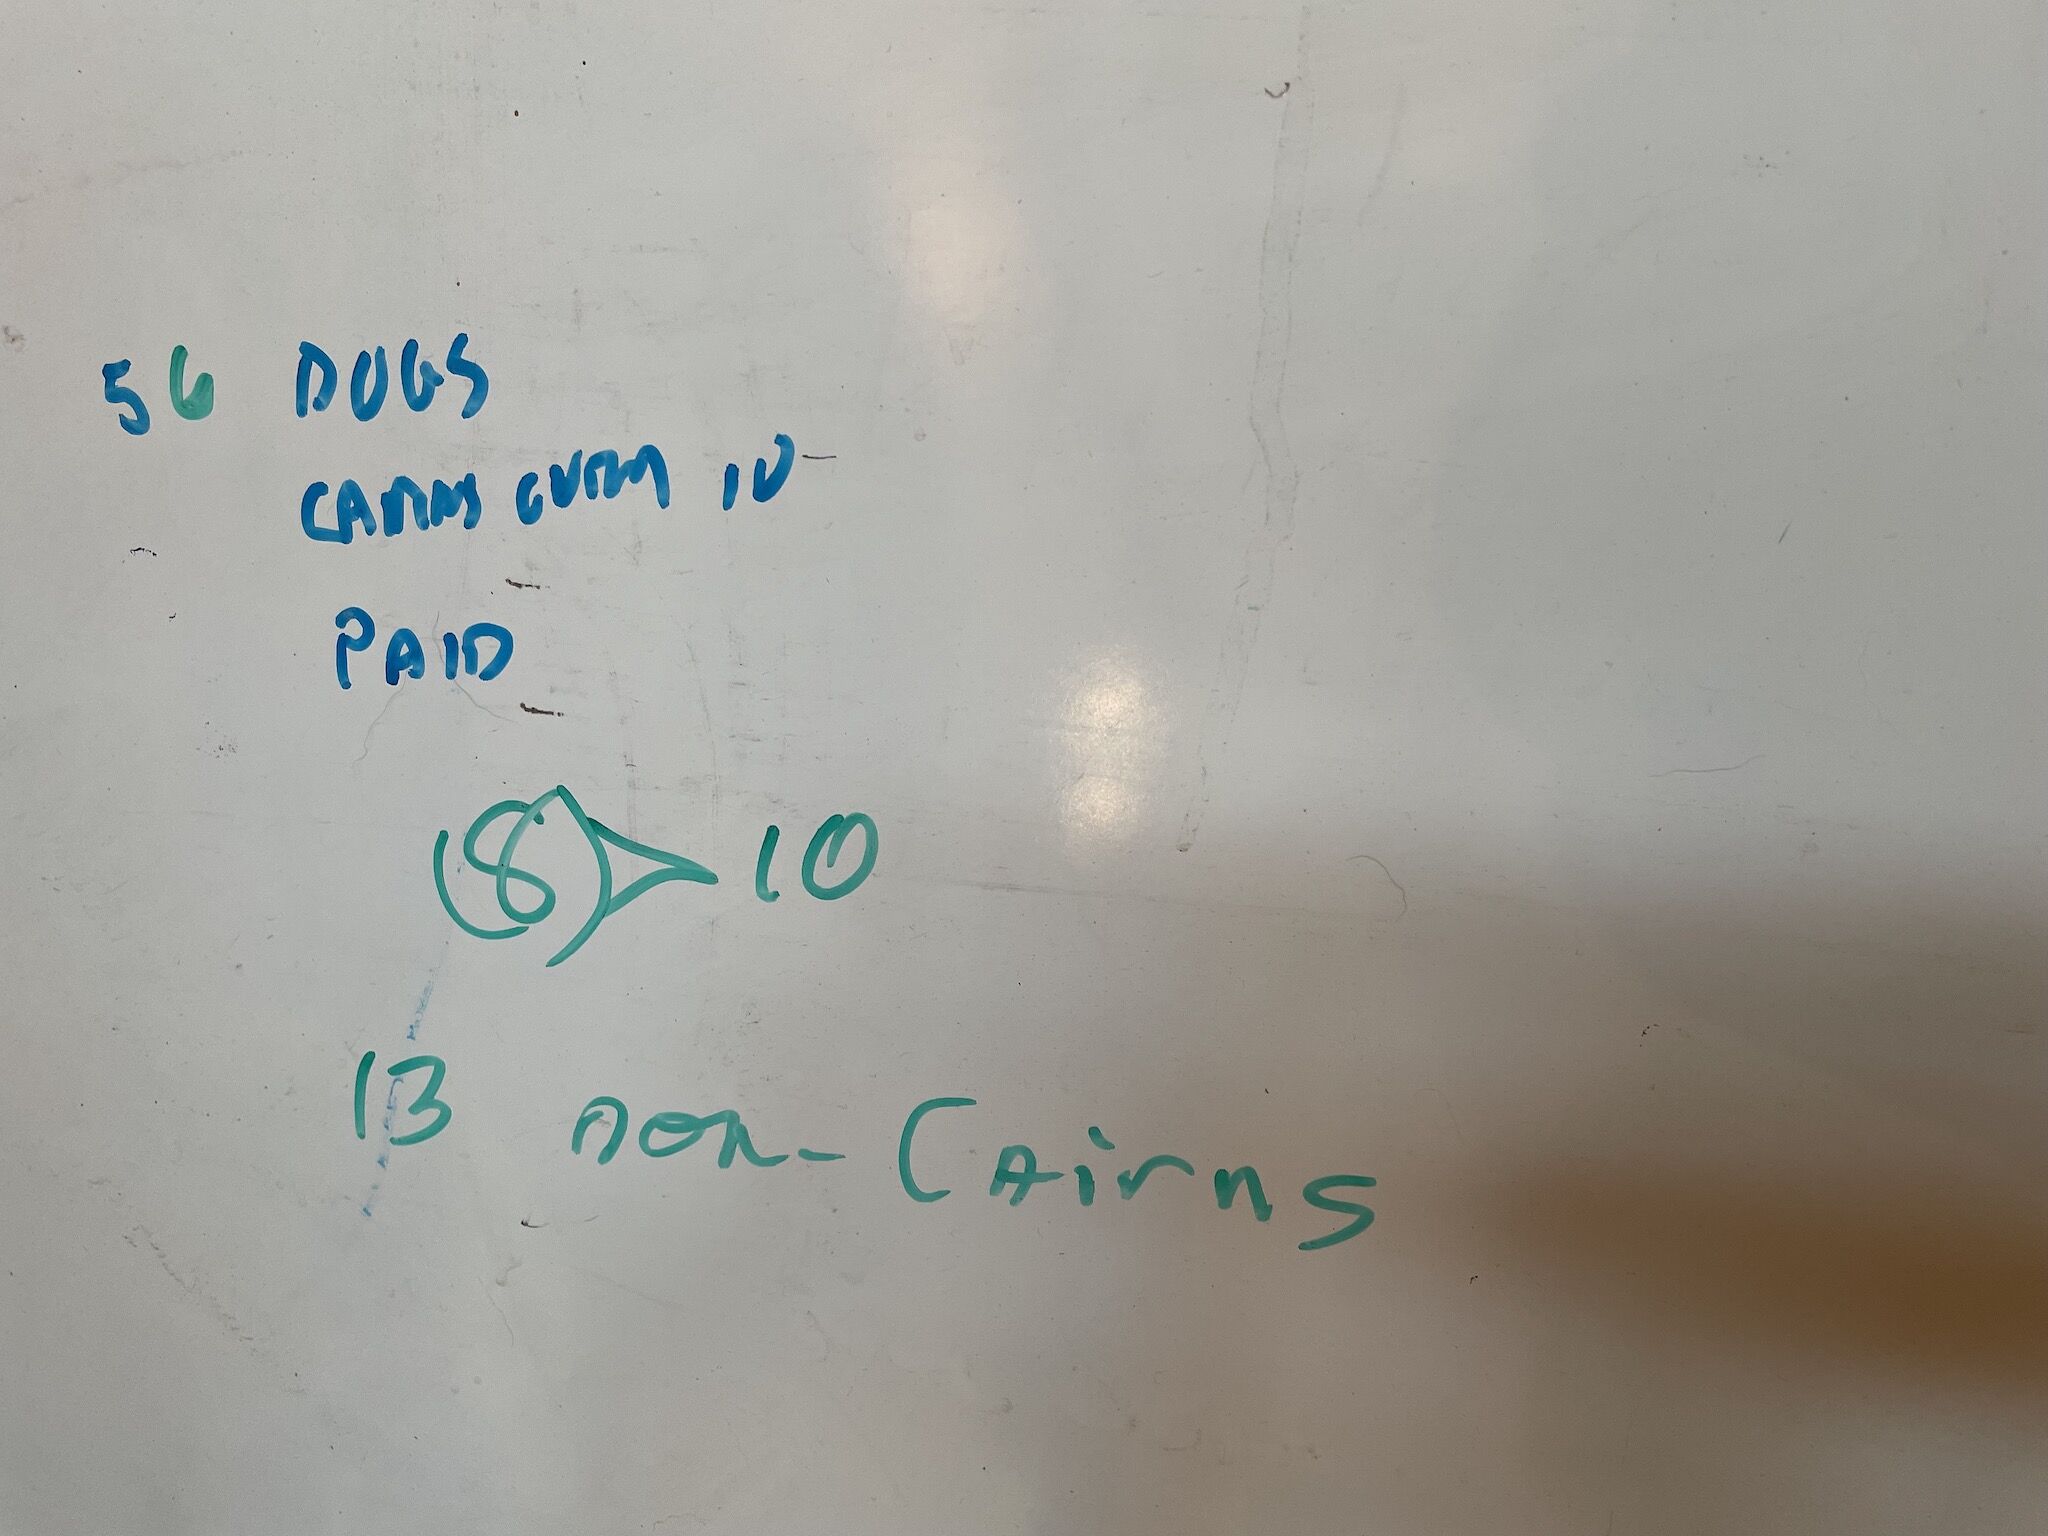 56 DOGS
CAIRNS OVER 10
PAID
(8) > 10
13 non-Cairns